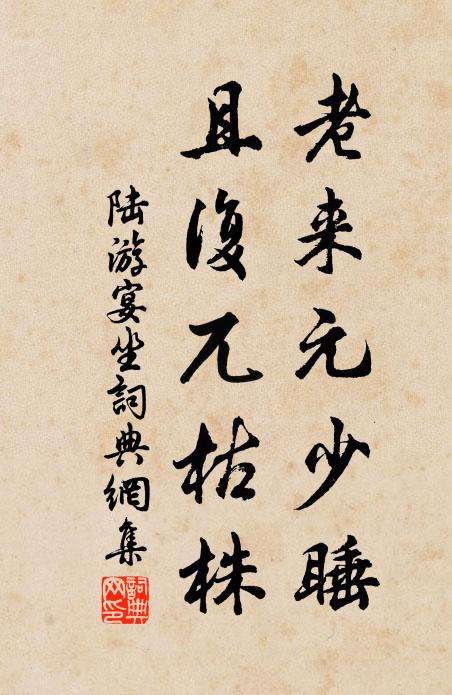 老来元少睡
且復兀枯株
陆游宴坐詞典網集
詞典網印